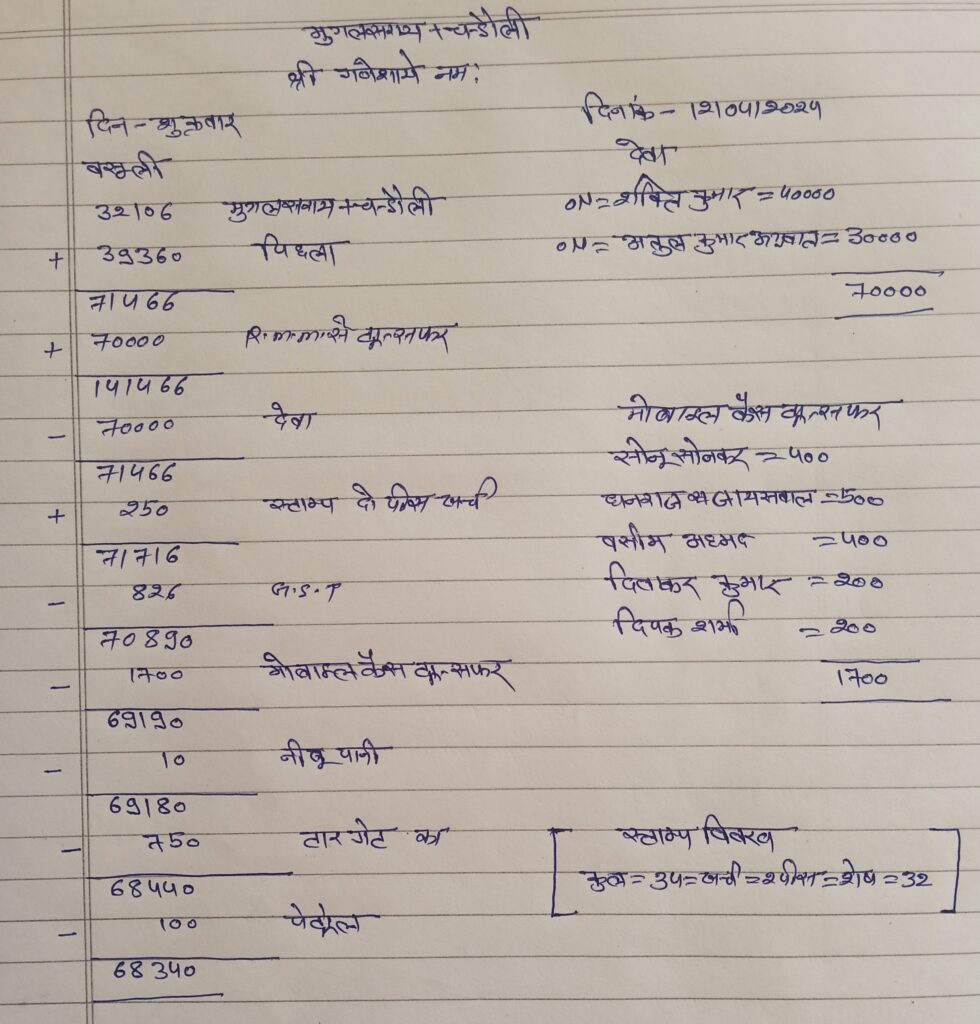 मुगलसराय + चन्डौली
श्री गनेशाये नम:
दिन - शुक्रवार
दिनांक - 12/04/2024
वसूली
देवा
32106 मुगलसराय + चन्डौली
ON = शक्ति कुमार = 40000
+ 39360 पिछला
ON = अतुल कुमार = 30000
71466
70000
+ 70000 R.m.m. से ट्रान्सफर
141466
- 70000 देवा
मोबाइल कैस ट्रान्सफर
71466
सोनू सोनकर = 400
+ 250 स्टाम्प दो पीस खर्ची
धनराज जायसवाल = 500
71716
वसीम अहमद = 400
- 826 G.S.T
दिवाकर कुमार = 200
70890
दिपक शर्मा = 200
- 1700 मोबाइल कैस ट्रान्सफर
1700
69190
- 10 नीबू पानी
69180
- 740 टारगेट का
स्टाम्प विवरण
68440
कुल = 34 = खर्ची = 2 पीस = शेष = 32
- 100 पेट्रोल
68340